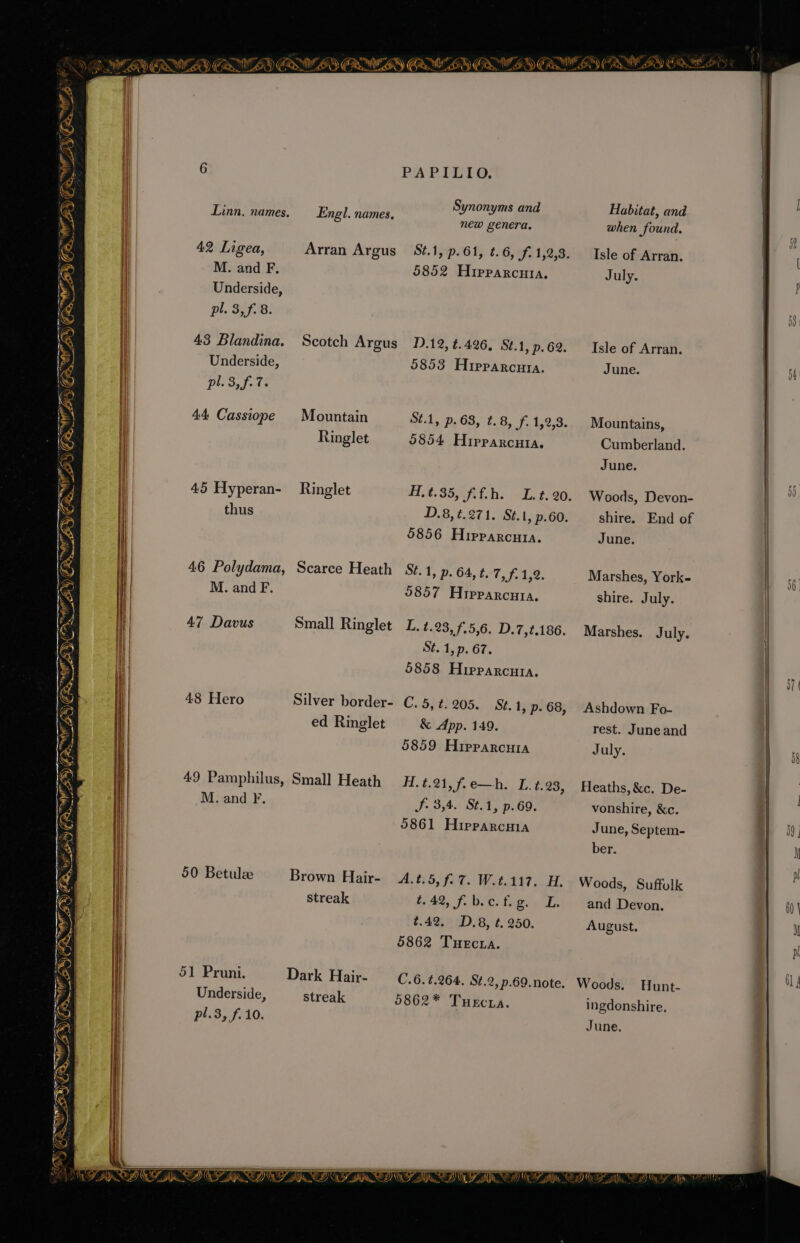 6 PAPILIO.
Linn. names. Engl. names. Synonyms and new genera. Habitat, and when found.
42 Ligea, Arran Argus St.1, p.61, t.6, f.1,2,3. Isle of Arran.
M. and F. 5852 HIPPARCHIA. July.
Underside,
pl. 3, f. 8.
43 Blandina. Scotch Argus D.12, t.426. St.1, p.62. Isle of Arran.
Underside, 5853 HIPPARCHIA. June.
pl. 3, f. 7.
44 Cassiope Mountain St.1, p.63, t.8, f.1,2,3. Mountains,
Ringlet 5854 HIPPARCHIA. Cumberland.
June.
45 Hyperan- Ringlet H.t.35, f.f.h. L.t.20. Woods, Devon-
thus D.8, t.271. St.1, p.60. shire. End of
5856 HIPPARCHIA. June.
46 Polydama, Scarce Heath St.1, p.64, t.7, f.1,2. Marshes, York-
M. and F. 5857 HIPPARCHIA. shire. July.
47 Davus Small Ringlet L.t.23, f.5,6. D.7, t.186. Marshes. July.
St.1, p.67.
5858 HIPPARCHIA.
48 Hero Silver border- C.5, t.205. St.1, p.68, Ashdown Fo-
ed Ringlet & App. 149. rest. June and
5859 HIPPARCHIA July.
49 Pamphilus, Small Heath H.t.21, f.e—h. L.t.23, Heaths, &c. De-
M. and F. f.3,4. St.1, p.69. vonshire, &c.
5861 HIPPARCHIA June, Septem-
ber.
50 Betulæ Brown Hair- A.t.5, f.7. W.t.117. H. Woods, Suffolk
streak t.42, f.b.c.f.g. L. and Devon.
t.42. D.8, t.250. August.
5862 THECLA.
51 Pruni. Dark Hair- C.6.t.264. St.2, p.69.note. Woods. Hunt-
Underside, streak 5862* THECLA. ingdonshire.
pl.3, f.10. June.